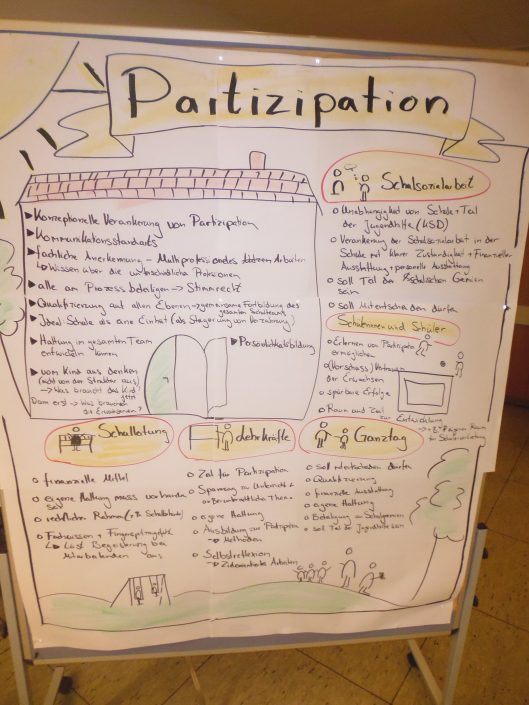 Partizipation
▶ Konzeptionelle Verankerung von Partizipation
▶ Kommunikationsstandards
▶ fachliche Anerkennung -
↳ Wissen über die
▶ alle am Prozess beteiligen → Stimmrecht
▶ Qualifizierung auf allen Ebenen → gemeinsame Fortbildung des
gesamten Schulteams
▶ Ideal: Schule als eine Einheit (als Steigerung von Verzahnung)
▶ Haltung im gesamten Team
entwickeln können
▶ Persönlichkeitsbildung
▶ vom Kind aus denken
(nicht von der Struktur aus)
→ Was braucht das Kind
jetzt
Dann erst → Was brauchen
die Erwachsenen?
Schulsozialarbeit
o Unabhängigkeit von Schule + Teil
der Jugendhilfe (KSD)
o Verankerung der Schulsozialarbeit in der
Schule mit klarer Zuständigkeit + Finanzieller
Ausstattung + personelle Ausstattung
o soll Teil der schulischen Gemein
sein
o soll mitentscheiden dürfen
Schülerinnen und Schüler
o Erlernen von Partizipation
ermöglichen
o (Vorschuss) Vertrauen
der Erwachsenen
o spürbare Erfolge
o Raum und Zeit
zur Entwicklung
→ z.B. eigener Raum
für
Schulleitung
o finanzielle Mittel
o eigene Haltung muss vorhanden
sein
o rechtlicher Rahmen (z.B.
o
↳ Lust, Begeisterung bei
Mitarbeitenden aus
Lehrkräfte
o Zeit für Partizipation
o Spannung zu Unterricht +
o eigene Haltung
o Ausbildung zur Partizipation
→ Methoden
o Selbstreflexion
→ Arbeiten
Ganztag
o soll mitentscheiden dürfen
o Qualifizierung
o finanzielle Ausstattung
o eigene Haltung
o Beteiligung an
o soll Teil der Jugendhilfe sein